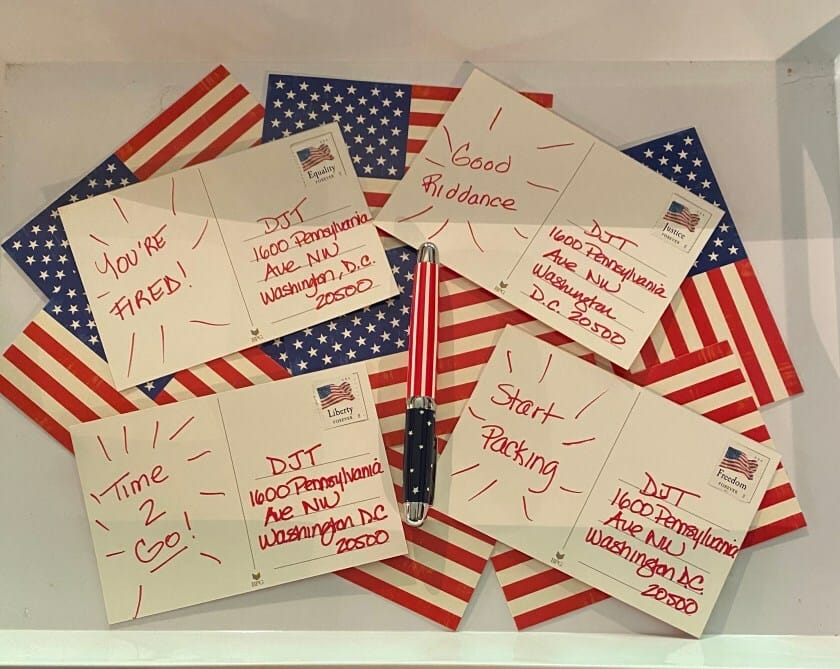 YOU'RE
FIRED!
USA
Equality
FOREVER
DJT
1600 Pennsylvania
Ave NW
Washington, D.C.
20500
BPG
Good
Riddance
Justice
FOREVER
DJT
1600 Pennsylvania
Ave NW
Washington
D.C. 20500
BPG
Time
2
Go!
Liberty
FOREVER
DJT
1600 Pennsylvania
Ave NW
Washington D.C
20500
BPG
Start
Packing
Freedom
FOREVER
DJT
1600 Pennsylvania
Ave NW
Washington D.C.
20500
BPG